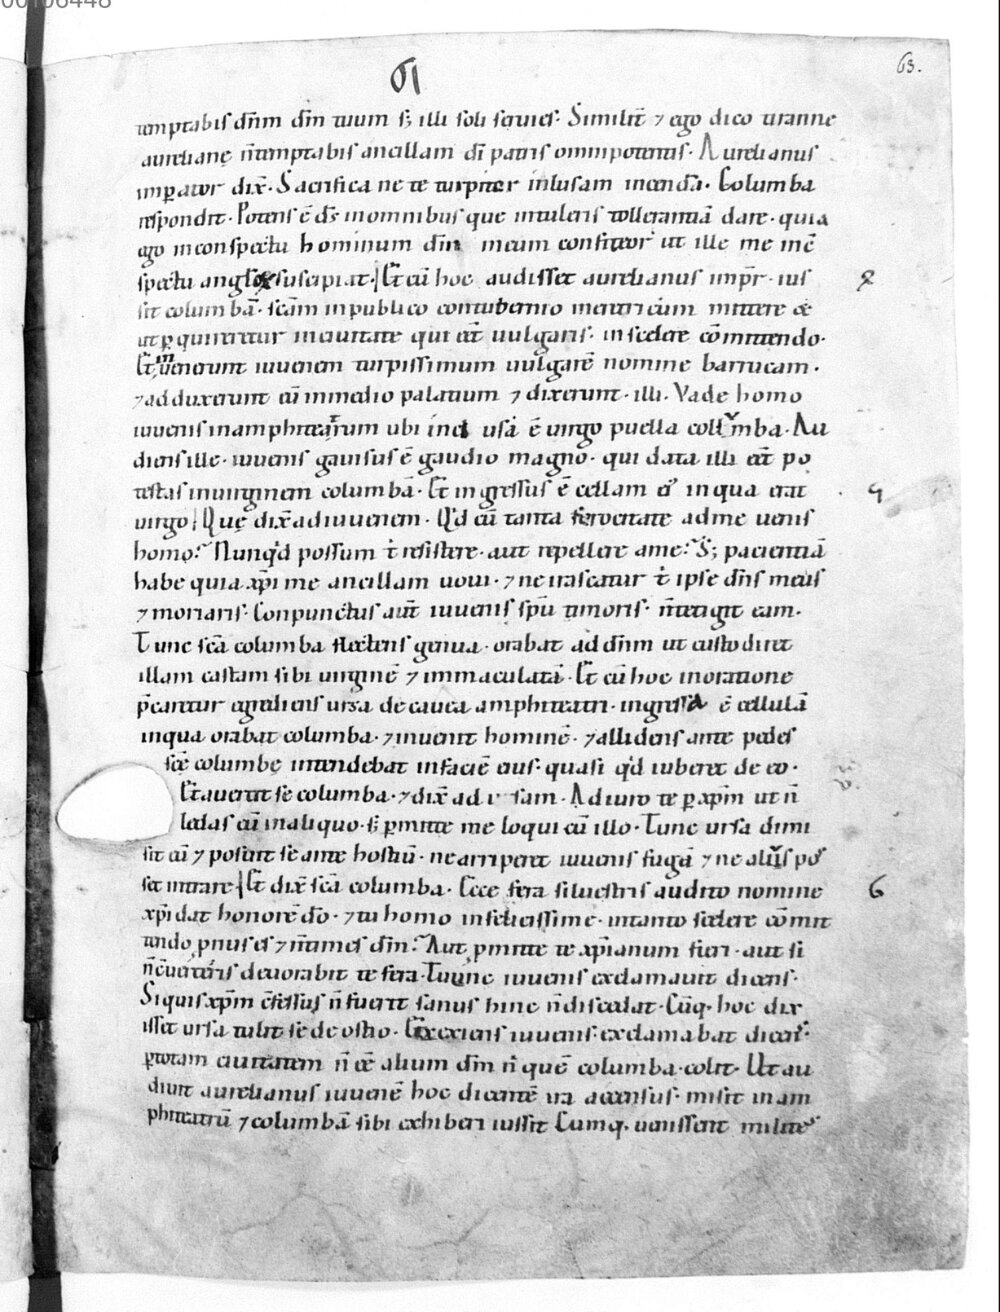 00106448
61
63.
temptabis dn̄m dm̄ tuum s; illi soli seruies. Similit̄ ⁊ ego dico tiranne
aureliane n̄ temptabis ancillam dī patris omnipotentis. Aurelianus
imꝑator dix̄. Sacrifica ne te turpiter inlusam incendā. Columba
respondit. Potens ē ds̄ in omnibus que intuleris tollerantiā dare. quia
ego in conspectu hominum dm̄ meum confiteor ut ille me in c̄
spectu anglo suscipiat. Et cū hoc audisset aurelianus imp̄r. ius
sit columbā. scām in publico contubernio meretricum mittere &
ut ꝑquireretur in ciuitate qui eēt uulgaris. in scelere cōmittendo.
Et inuenerunt iuuenem turpissimum uulgarē nomine barrucam.
⁊ adduxerunt eū in medio palatium ⁊ dixerunt. illi. Vade homo
iuuenis in amphiteatrum ubi inclusa ē uirgo puella columba. Au
diens ille. iuuenis gauisus ē gaudio magno. qui data illi eēt po
testas in uirginem columbā. Et ingressus ē cellam in qua erat
uirgo. Quę dix̄ ad iuuenem. Qd̄ cū tanta feroeitate ad me uenis
homo? Nunqd̄ possum t̄ resistere. aut repellere a me? S; pacientiā
habe quia xp̄i me ancillam uoui. ⁊ ne irascatur t̄ ipse dn̄s meus
⁊ moriaris. Conpunctus aut̄ iuuenis sp̄u timoris. n̄ tetigit eam.
Tunc scā columba flectens genua. orabat ad dn̄m ut custodiret
illam castam sibi uirginē ⁊ immaculatā. Et cū hoc in oratione
p̄caretur egrediens ursa de cauea amphiteatri. ingressa ē cellulā
in qua orabat columba. ⁊ inuenit hominē. ⁊ allidens ante pedes
scē columbę intendebat in faciē eius. quasi qd̄ iuberet de eo.
Et auertit se columba. ⁊ dix̄ ad ursam. Adiuro te ꝑ xp̄m ut n̄
ledas eū in aliquo. s; ꝑmitte me loqui cū illo. Tunc ursa dimi
sit eū ⁊ posuit se ante hostiū. ne arriperet iuuenis fugā ⁊ ne alius pos
set intrare. Et dix̄ scā columba. Ecce fera siluestris audito nomine
xp̄i dat honorē dō. ⁊ tu homo infelicissime. in tanto scelere cōmit
tendo, pnus es ⁊ n̄ times dm̄? Aut ꝑmitte te xp̄ianum fieri. aut si
n̄ c̄uerteris deuorabit te fera. Tunc iuuenis exclamauit dicens.
Si quis xp̄m c̄fessus n̄ fuerit sanus hinc n̄ discedat. Cūq. hoc dix
isset ursa tulit se de ostio. Et exiens iuuenis exclamabat dicens.
ꝑ totam ciuitatem n̄ eē alium dm̄ n̄ quē columba colit. Ut au
diuit aurelianus iuuenē hoc dicentē ira accensus. misit in am
phiteatrū ⁊ columbā sibi exhiberi iussit Cumq. uenissent milites
4
6